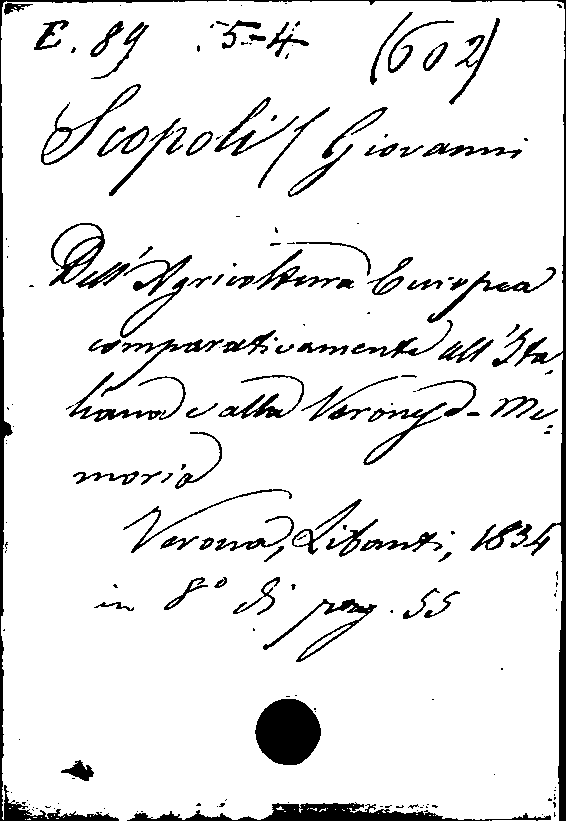 E. 89 .5-4. (602)
Scopoli / Giovanni
Dell' Agricoltura Europea
comparativamente all' Ita,
liana e alla Veronese - Me=
moria
Verona, Libanti, 1834
in 8° di pag. 55